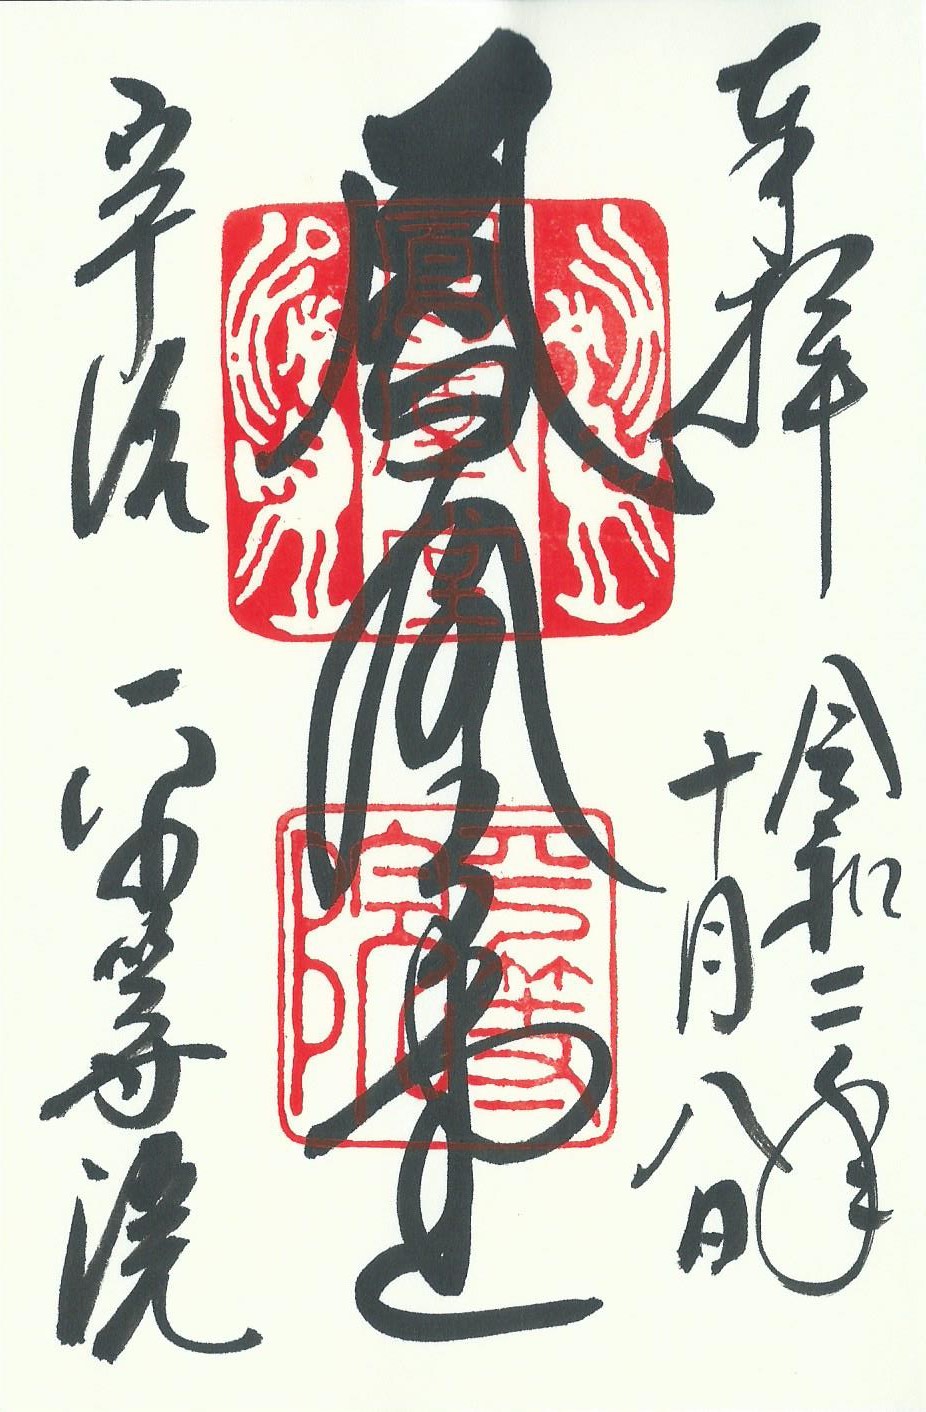 奉拝
令和二年
十月八日
鳳凰堂
鳳凰堂
平等院
宇治 平等院